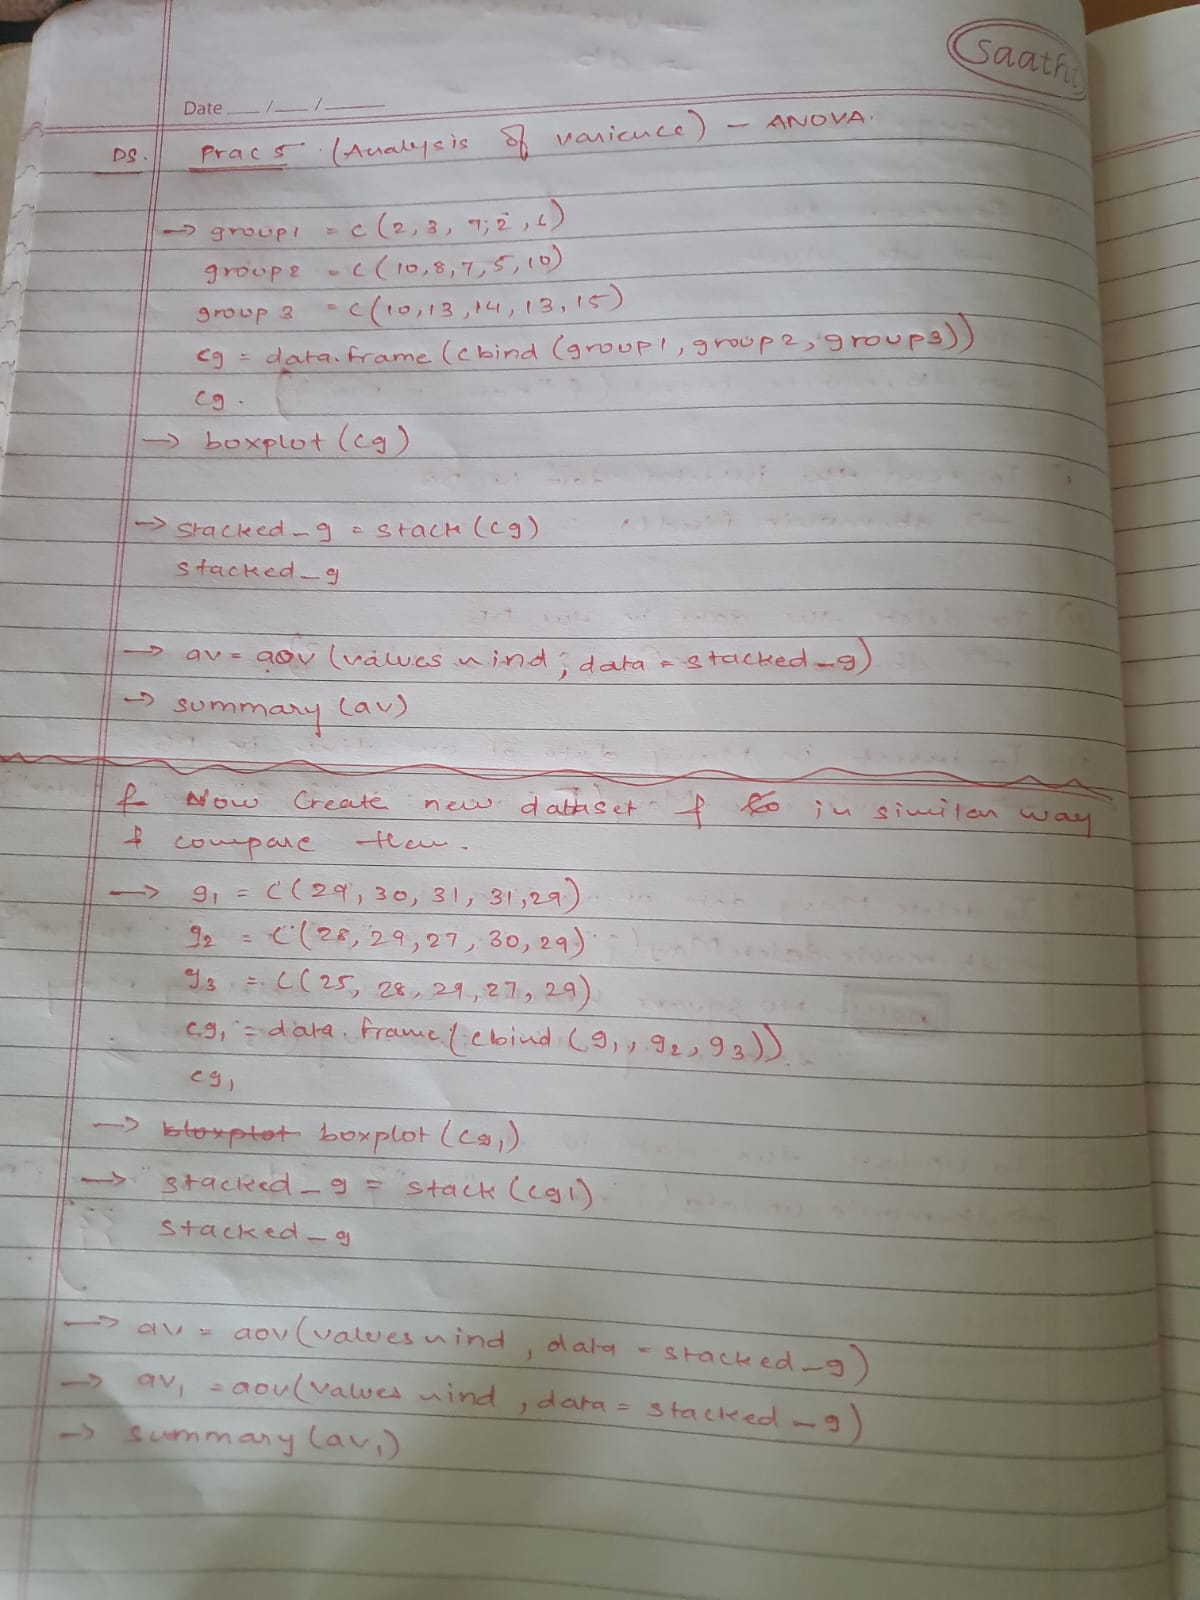 saathi
Date __/__/____
DS. Prac 5 (Analysis of varience) - ANOVA.
→ group1 = c(2,3,7,2,6)
group2 = c(10,8,7,5,10)
group 3 = c(10,13,14,13,15)
cg = data.frame(cbind(group1, group2, group3))
cg.
→ boxplot(cg)
→ stacked_g = stack(cg)
stacked_g
→ av = aov(values ~ ind, data = stacked_g)
→ summary(av)
& Now Create new dataset & in similar way
& compare them.
→ g1 = c(29, 30, 31, 31, 29)
g2 = c(28, 29, 27, 30, 29)
g3 = c(25, 28, 29, 27, 29)
cg1 = data.frame(cbind(g1, g2, g3))
cg1
→ bloxplot boxplot(cg1)
→ stacked_g = stack(cg1)
stacked_g
→ av = aov(values ~ ind, data = stacked_g)
→ av1 = aov(values ~ ind, data = stacked_g)
→ summary(av1)